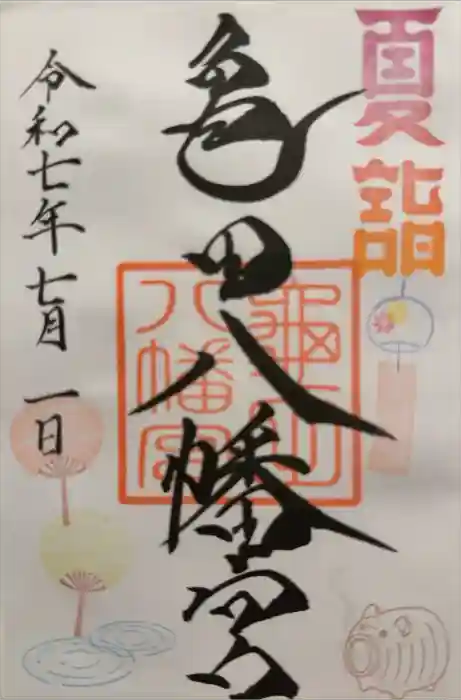 夏詣
亀山八幡宮
龜山
八幡宮
令和七年七月一日